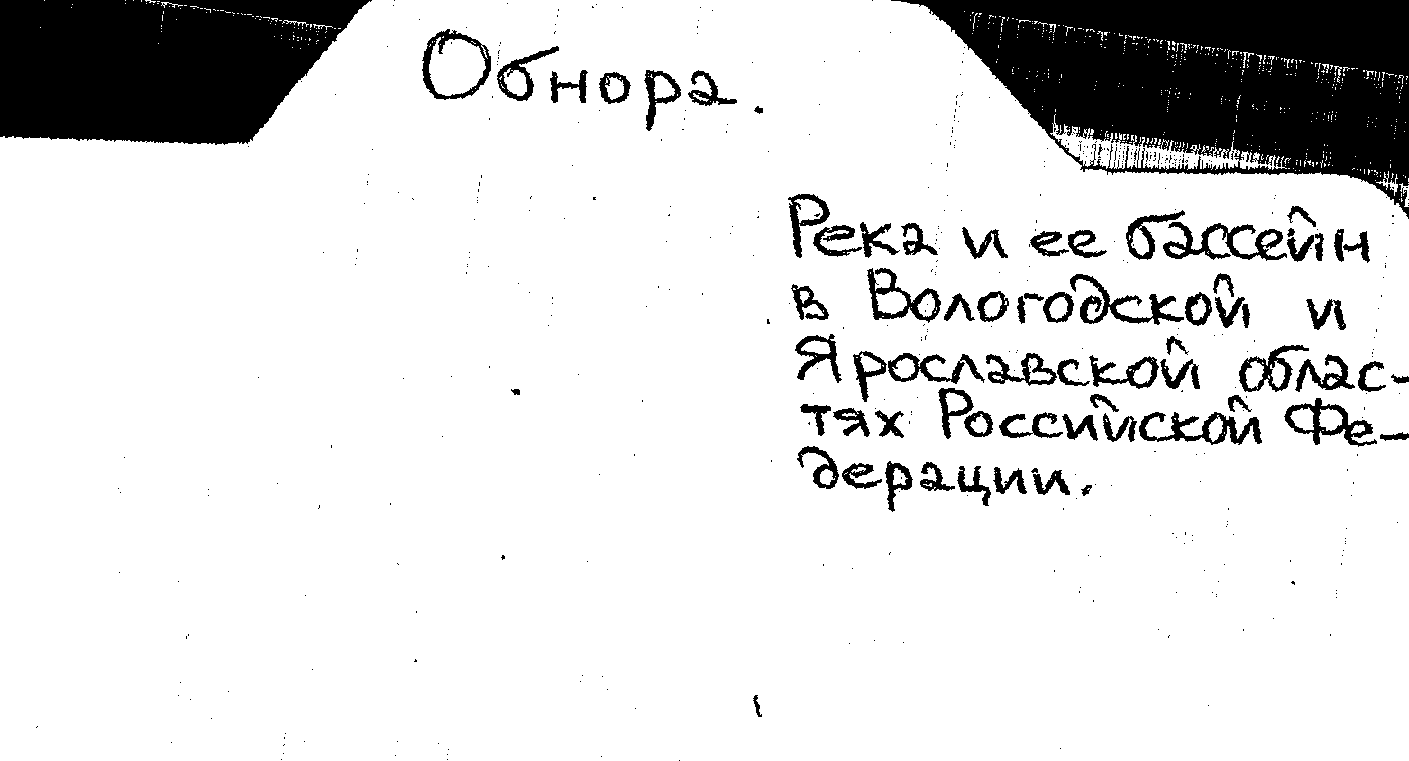 Обнора.
Река и ее бассейн
в Вологодской и
Ярославской облас-
тях Российской Фе-
дерации.